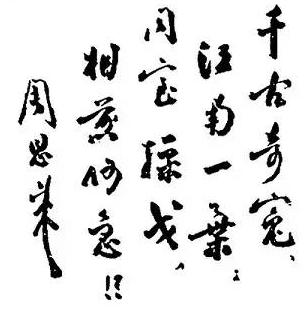 千古奇寃、
江南一葉；
同室操戈、
相煎何急！！
周恩來